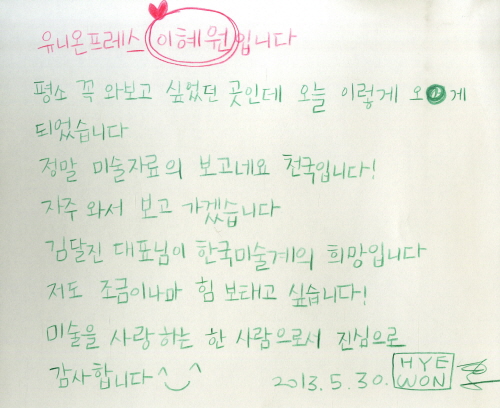 유니온프레스 이혜원입니다
평소 꼭 와보고 싶었던 곳인데 오늘 이렇게 오게
되었습니다
정말 미술자료의 보고네요 천국입니다!
자주 와서 보고 가겠습니다
김달진 대표님이 한국미술계의 희망입니다
저도 조금이나마 힘 보태고 싶습니다!
미술을 사랑하는 한 사람으로서 진심으로
감사합니다^_^
2013.5.30. HYE WON